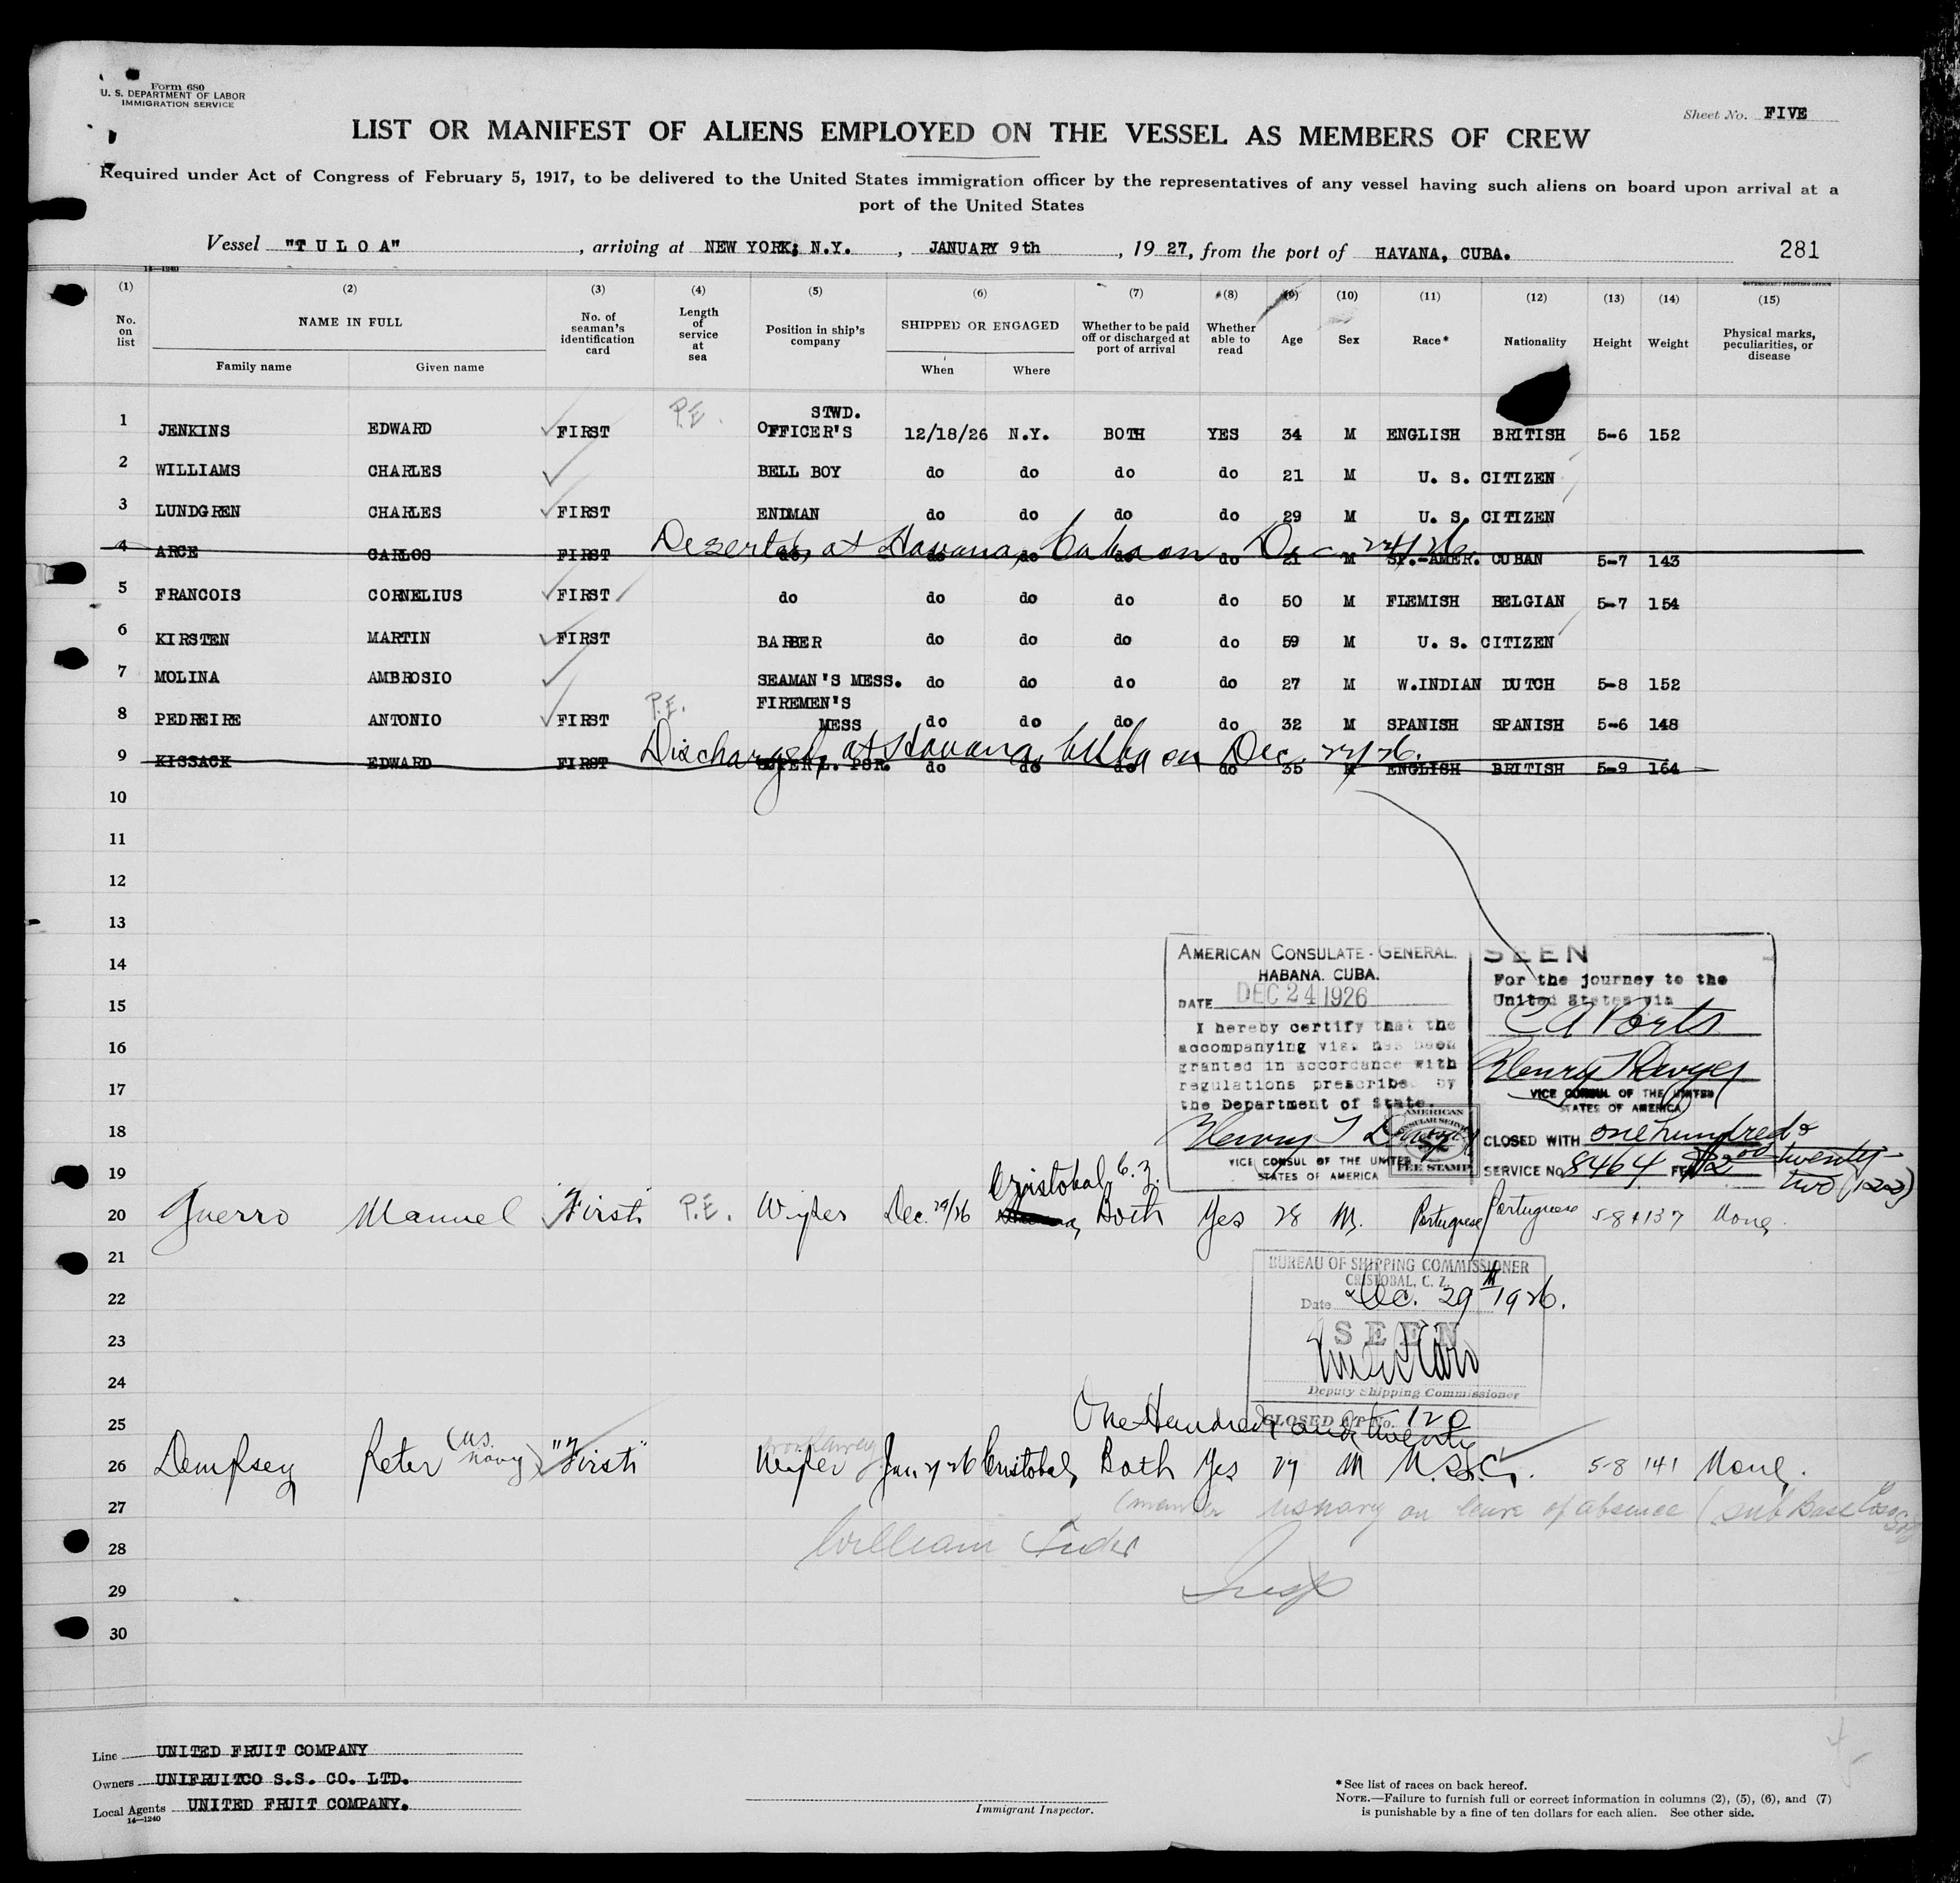 Form 680
U. S. DEPARTMENT OF LABOR
IMMIGRATION SERVICE
Sheet No. FIVE
LIST OR MANIFEST OF ALIENS EMPLOYED ON THE VESSEL AS MEMBERS OF CREW
Required under Act of Congress of February 5, 1917, to be delivered to the United States immigration officer by the representatives of any vessel having such aliens on board upon arrival at a
port of the United States
Vessel "T U L O A", arriving at NEW YORK; N.Y., JANUARY 9th, 19 27, from the port of HAVANA, CUBA. 281
14—1240 GOVERNMENT PRINTING OFFICE
(1) (2) (3) (4) (5) (6) (7) (8) (9) (10) (11) (12) (13) (14) (15)
No. on list NAME IN FULL No. of seaman's identification card Length of service at sea Position in ship's company SHIPPED OR ENGAGED Whether to be paid off or discharged at port of arrival Whether able to read Age Sex Race* Nationality Height Weight Physical marks, peculiarities, or disease
Family name Given name When Where
1 JENKINS EDWARD FIRST P.E. STWD. OFFICER'S 12/18/26 N.Y. BOTH YES 34 M ENGLISH BRITISH 5-6 152
2 WILLIAMS CHARLES BELL BOY do do do do 21 M U. S. CITIZEN
3 LUNDGREN CHARLES FIRST ENDMAN do do do do 29 M U. S. CITIZEN
Deserted, at Havana, Cuba on Dec 24/26
4 ARCE CARLOS FIRST do do do do do 21 M SP.-AMER. CUBAN 5-7 143
5 FRANCOIS CORNELIUS FIRST do do do do do 50 M FLEMISH BELGIAN 5-7 154
6 KIRSTEN MARTIN FIRST BARBER do do do do 59 M U. S. CITIZEN
7 MOLINA AMBROSIO SEAMAN'S MESS. do do do do 27 M W.INDIAN DUTCH 5-8 152
8 PEDREIRE ANTONIO FIRST P.E. FIREMEN'S MESS do do do do 32 M SPANISH SPANISH 5-6 148
Discharged, at Havana, Cuba on Dec. 24/26.
9 KISSACK EDWARD FIRST do do do do 35 M ENGLISH BRITISH 5-9 164
10
11
12
13
14
15
16
17
18
19
AMERICAN CONSULATE-GENERAL.
HABANA. CUBA.
DATE DEC 24 1926
I hereby certify that the
accompanying visa has been
granted in accordance with
regulations prescribed by
the Department of State.
VICE CONSUL OF THE UNITED
STATES OF AMERICA
AMERICAN
CONSULAR SERVICE
FEE STAMP
SEEN
For the journey to the
United States via
C A Ports
VICE CONSUL OF THE UNITED
STATES OF AMERICA
CLOSED WITH one hundred & twenty-two (122)
SERVICE No 8464 FEE $2.00
Cristobal, C. Z.
20 Guerro Manuel First P.E. Wiper Dec. 29/26 Both Yes 28 M. Portuguese Portuguese 5-8 137 None.
21
22
23
24
25
BUREAU OF SHIPPING COMMISSIONER
CRISTOBAL, C. Z.
Date Dec. 29th 1926.
SEEN
Deputy Shipping Commissioner
CLOSED AT No. 120
One Hundred and twenty
26 Dempsey Peter (U.S. Navy) "First" Wiper Jan 2/26 Cristobal, Both Yes 27 M U.S.C. 5-8 141 None.
27 (member US Navy on leave of absence (Sub Base
28 William
29
30
Line UNITED FRUIT COMPANY
Owners UNIFRUITCO S.S. CO. LTD.
Local Agents UNITED FRUIT COMPANY.
14—1240
Immigrant Inspector.
*See list of races on back hereof.
NOTE.—Failure to furnish full or correct information in columns (2), (5), (6), and (7)
is punishable by a fine of ten dollars for each alien. See other side.